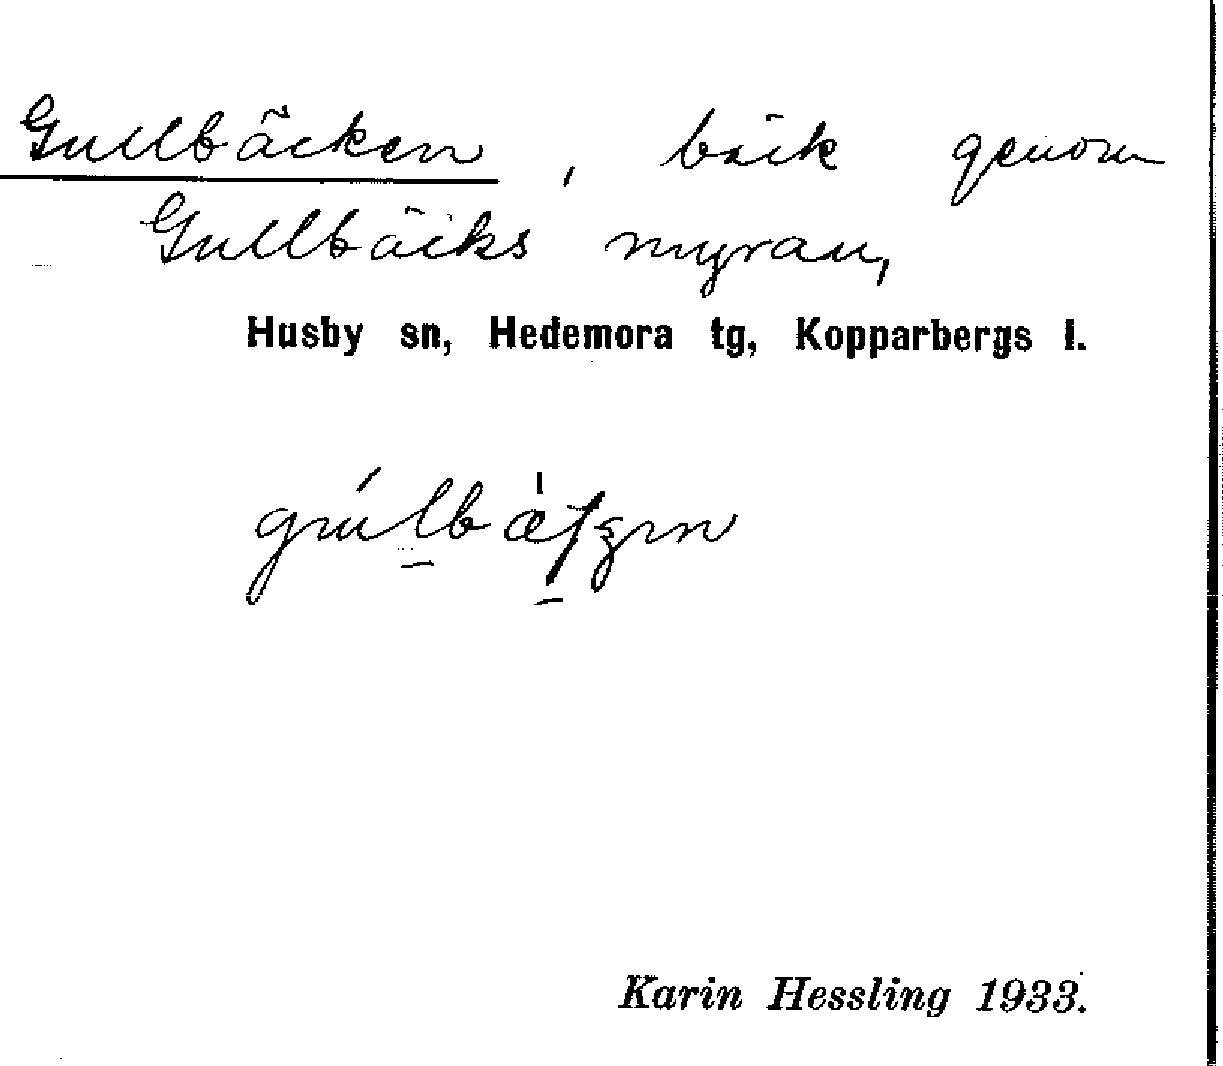 Gullbäcken, bäck genom
Gullbäcks myran,
Husby sn, Hedemora tg, Kopparbergs l.
Karin Hessling 1933.